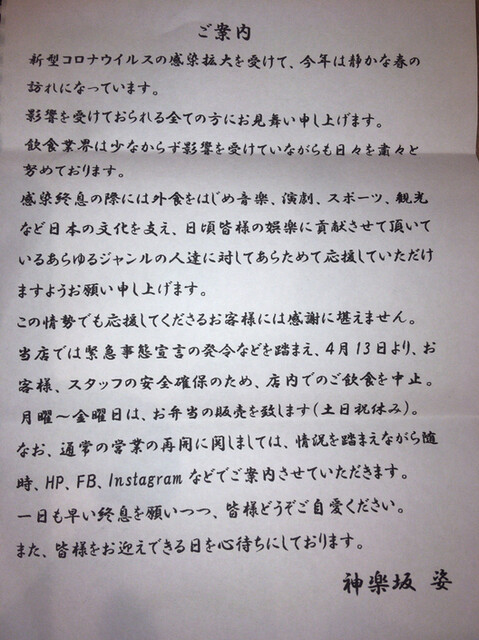 ご案内
新型コロナウイルスの感染拡大を受けて、今年は静かな春の
訪れになっています。
影響を受けておられる全ての方にお見舞い申し上げます。
飲食業界は少なからず影響を受けていながらも日々を粛々と
努めております。
感染終息の際には外食をはじめ音楽、演劇、スポーツ、観光
など日本の文化を支え、日頃皆様の娯楽に貢献させて頂いて
いるあらゆるジャンルの人達に対してあらためて応援していただけ
ますようお願い申し上げます。
この情勢でも応援してくださるお客様には感謝に堪えません。
当店では緊急事態宣言の発令などを踏まえ、4月13日より、お
客様、スタッフの安全確保のため、店内でのご飲食を中止。
月曜～金曜日は、お弁当の販売を致します(土日祝休み)。
なお、通常の営業の再開に関しましては、情況を踏まえながら随
時、HP、FB、Instagramなどでご案内させていただきます。
一日も早い終息を願いつつ、皆様どうぞご自愛ください。
また、皆様をお迎えできる日を心待ちにしております。
神楽坂 姿